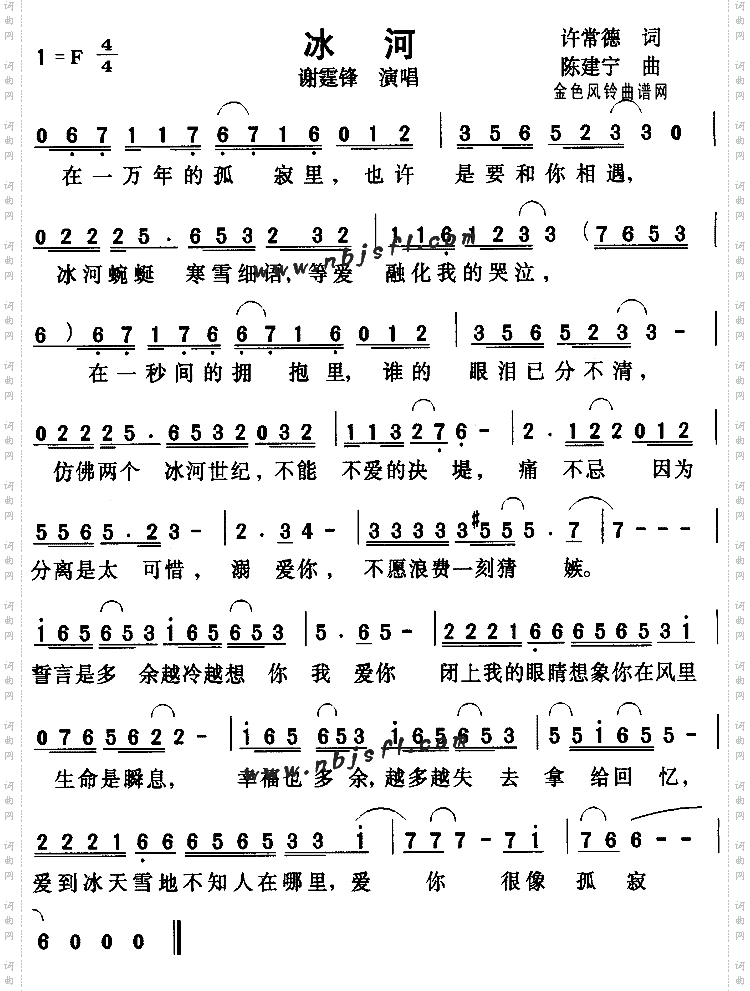 冰 河
1 = F 4/4
谢霆锋 演唱
许常德 词
陈建宁 曲
金色风铃曲谱网
0 6 7 1 1 7 6 7 1 6 0 1 2 | 3 5 6 5 2 3 3 0 |
在一万年的孤 寂里，也许 是要和你相遇，
0 2 2 2 5 . 6 5 3 2 3 2 | 1 1 6 1 2 3 3 ( 7 6 5 3 |
冰河蜿蜒 寒雪细语，等爱 融化我的哭泣，
6 ) 6 7 1 7 6 6 7 1 6 0 1 2 | 3 5 6 5 2 3 3 - |
在一秒间的拥 抱里，谁的 眼泪已分不清，
0 2 2 2 5 . 6 5 3 2 0 3 2 | 1 1 3 2 7 6 - | 2 . 1 2 2 0 1 2 |
仿佛两个 冰河世纪，不能 不爱的决 堤， 痛 不忌 因为
5 5 6 5 . 2 3 - | 2 . 3 4 - | 3 3 3 3 3 #5 5 5 . 7 | 7 - - - |
分离是太 可惜， 溺 爱你， 不愿浪费一刻猜 嫉。
1 6 5 6 5 3 1 6 5 6 5 3 | 5 . 6 5 - | 2 2 2 1 6 6 6 5 6 5 3 1 |
誓言是多 余越冷越想 你 我 爱你 闭上我的眼睛想象你在风里
0 7 6 5 6 2 2 - | 1 6 5 6 5 3 1 6 5 6 5 3 | 5 5 1 6 5 5 - |
生命是瞬息， 幸福也多余，越多越失 去 拿 给回 忆，
2 2 2 1 6 6 6 5 6 5 3 3 1 | 7 7 7 - 7 1 | 7 6 6 - - |
爱到冰天雪地不知人在哪里，爱 你 很像 孤 寂
6 0 0 0
www.nbjsfl.com
www.nbjsfl.com
词曲网